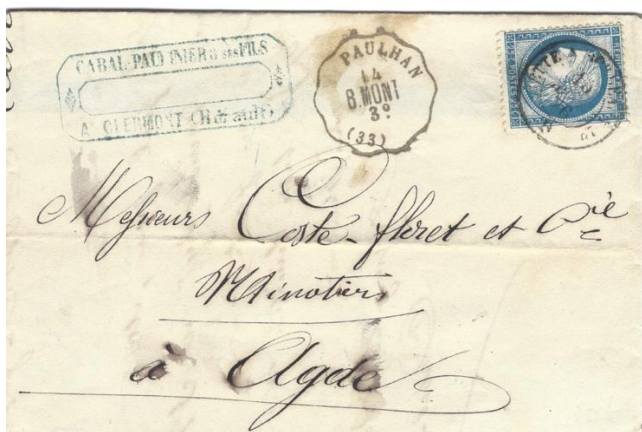 CABAL-PAULINIER & ses FILS
A CLERMONT (Hérault)
PAULHAN
14
B.MONT
3º
(33)
Messieurs Coste-floret et Cie
Minotiers
à Agde